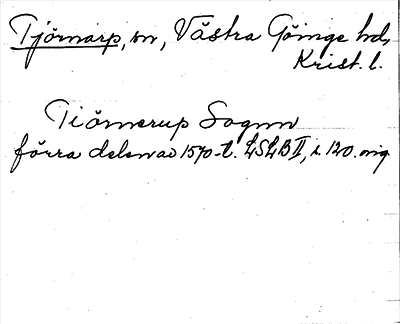 Tjörnarp, sn, Västra Göinge hd,
Krist. l.
Tiörnerup Sognn
förra delen av 1570-t. LSLB II, s. 120. orig.